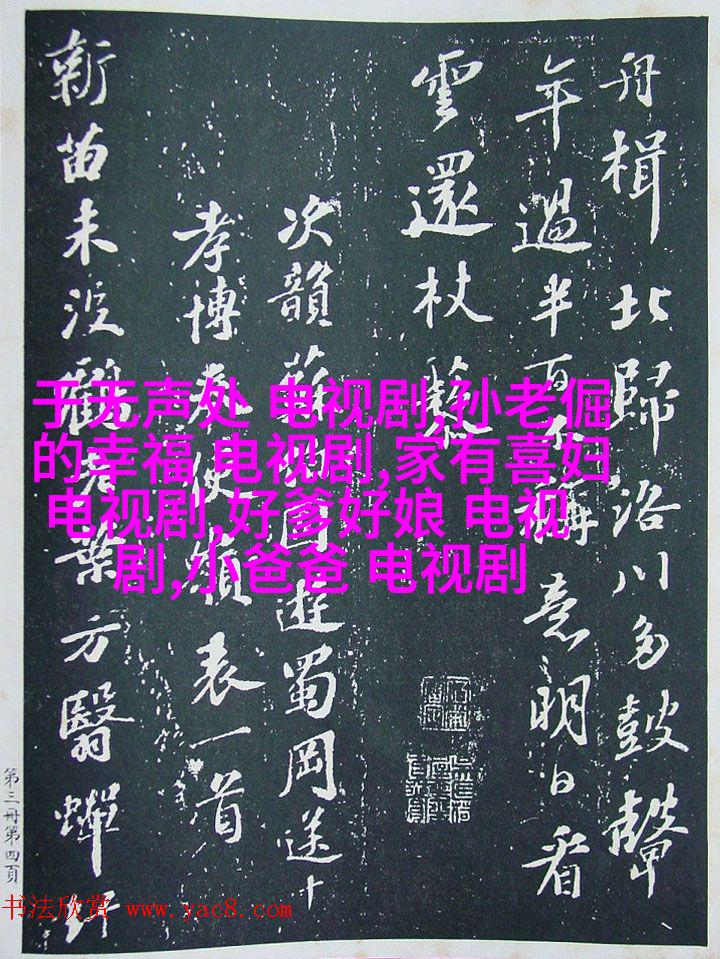 舟楫北歸洛川多鼓聲
年過半百不稱意明日看
雲還杖藜
次韻蘇固遊蜀岡送
孝博奉使嶺表一首
新苗未沒老葉方翳蟬
于无声处 电视剧,孙老倔
的幸福 电视剧,家有喜妇
电视剧,好爹好娘 电视
剧,小爸爸 电视剧
第三冊第四頁
书法欣赏 www.yac8.com